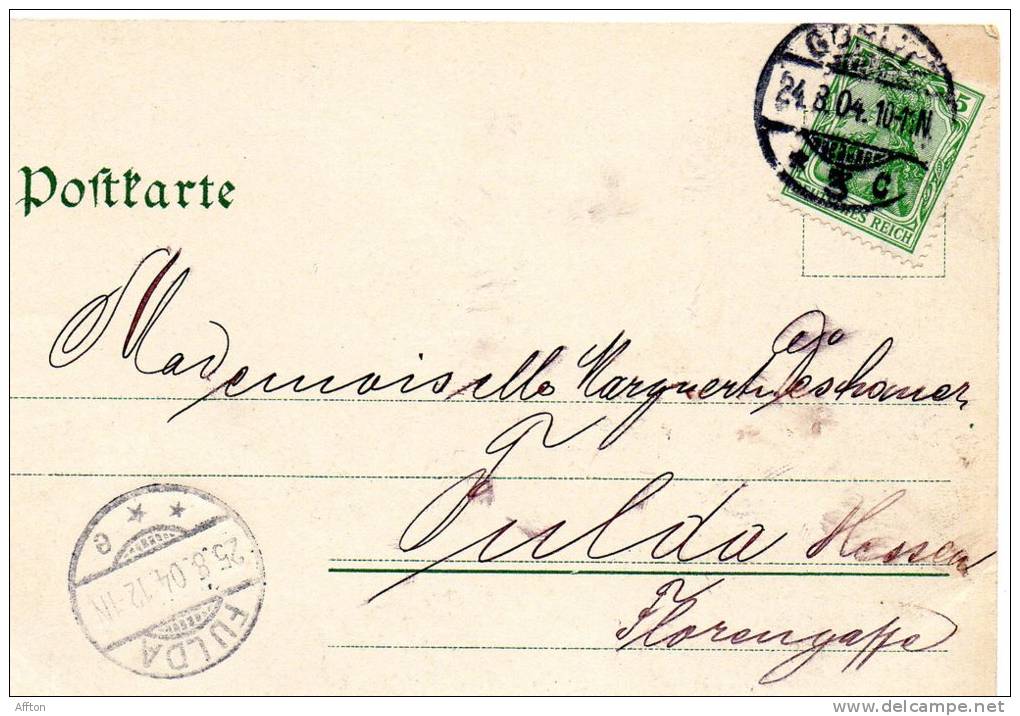 24.8.04.10-11N.
* 3 c
5
DEUTSCHES REICH
Postkarte
Mademoiselle Marguerite Deschauer
Fulda Hessen
Florengasse
* * c
25.8.04.12-1N
FULDA
Affton
www.delcampe.net